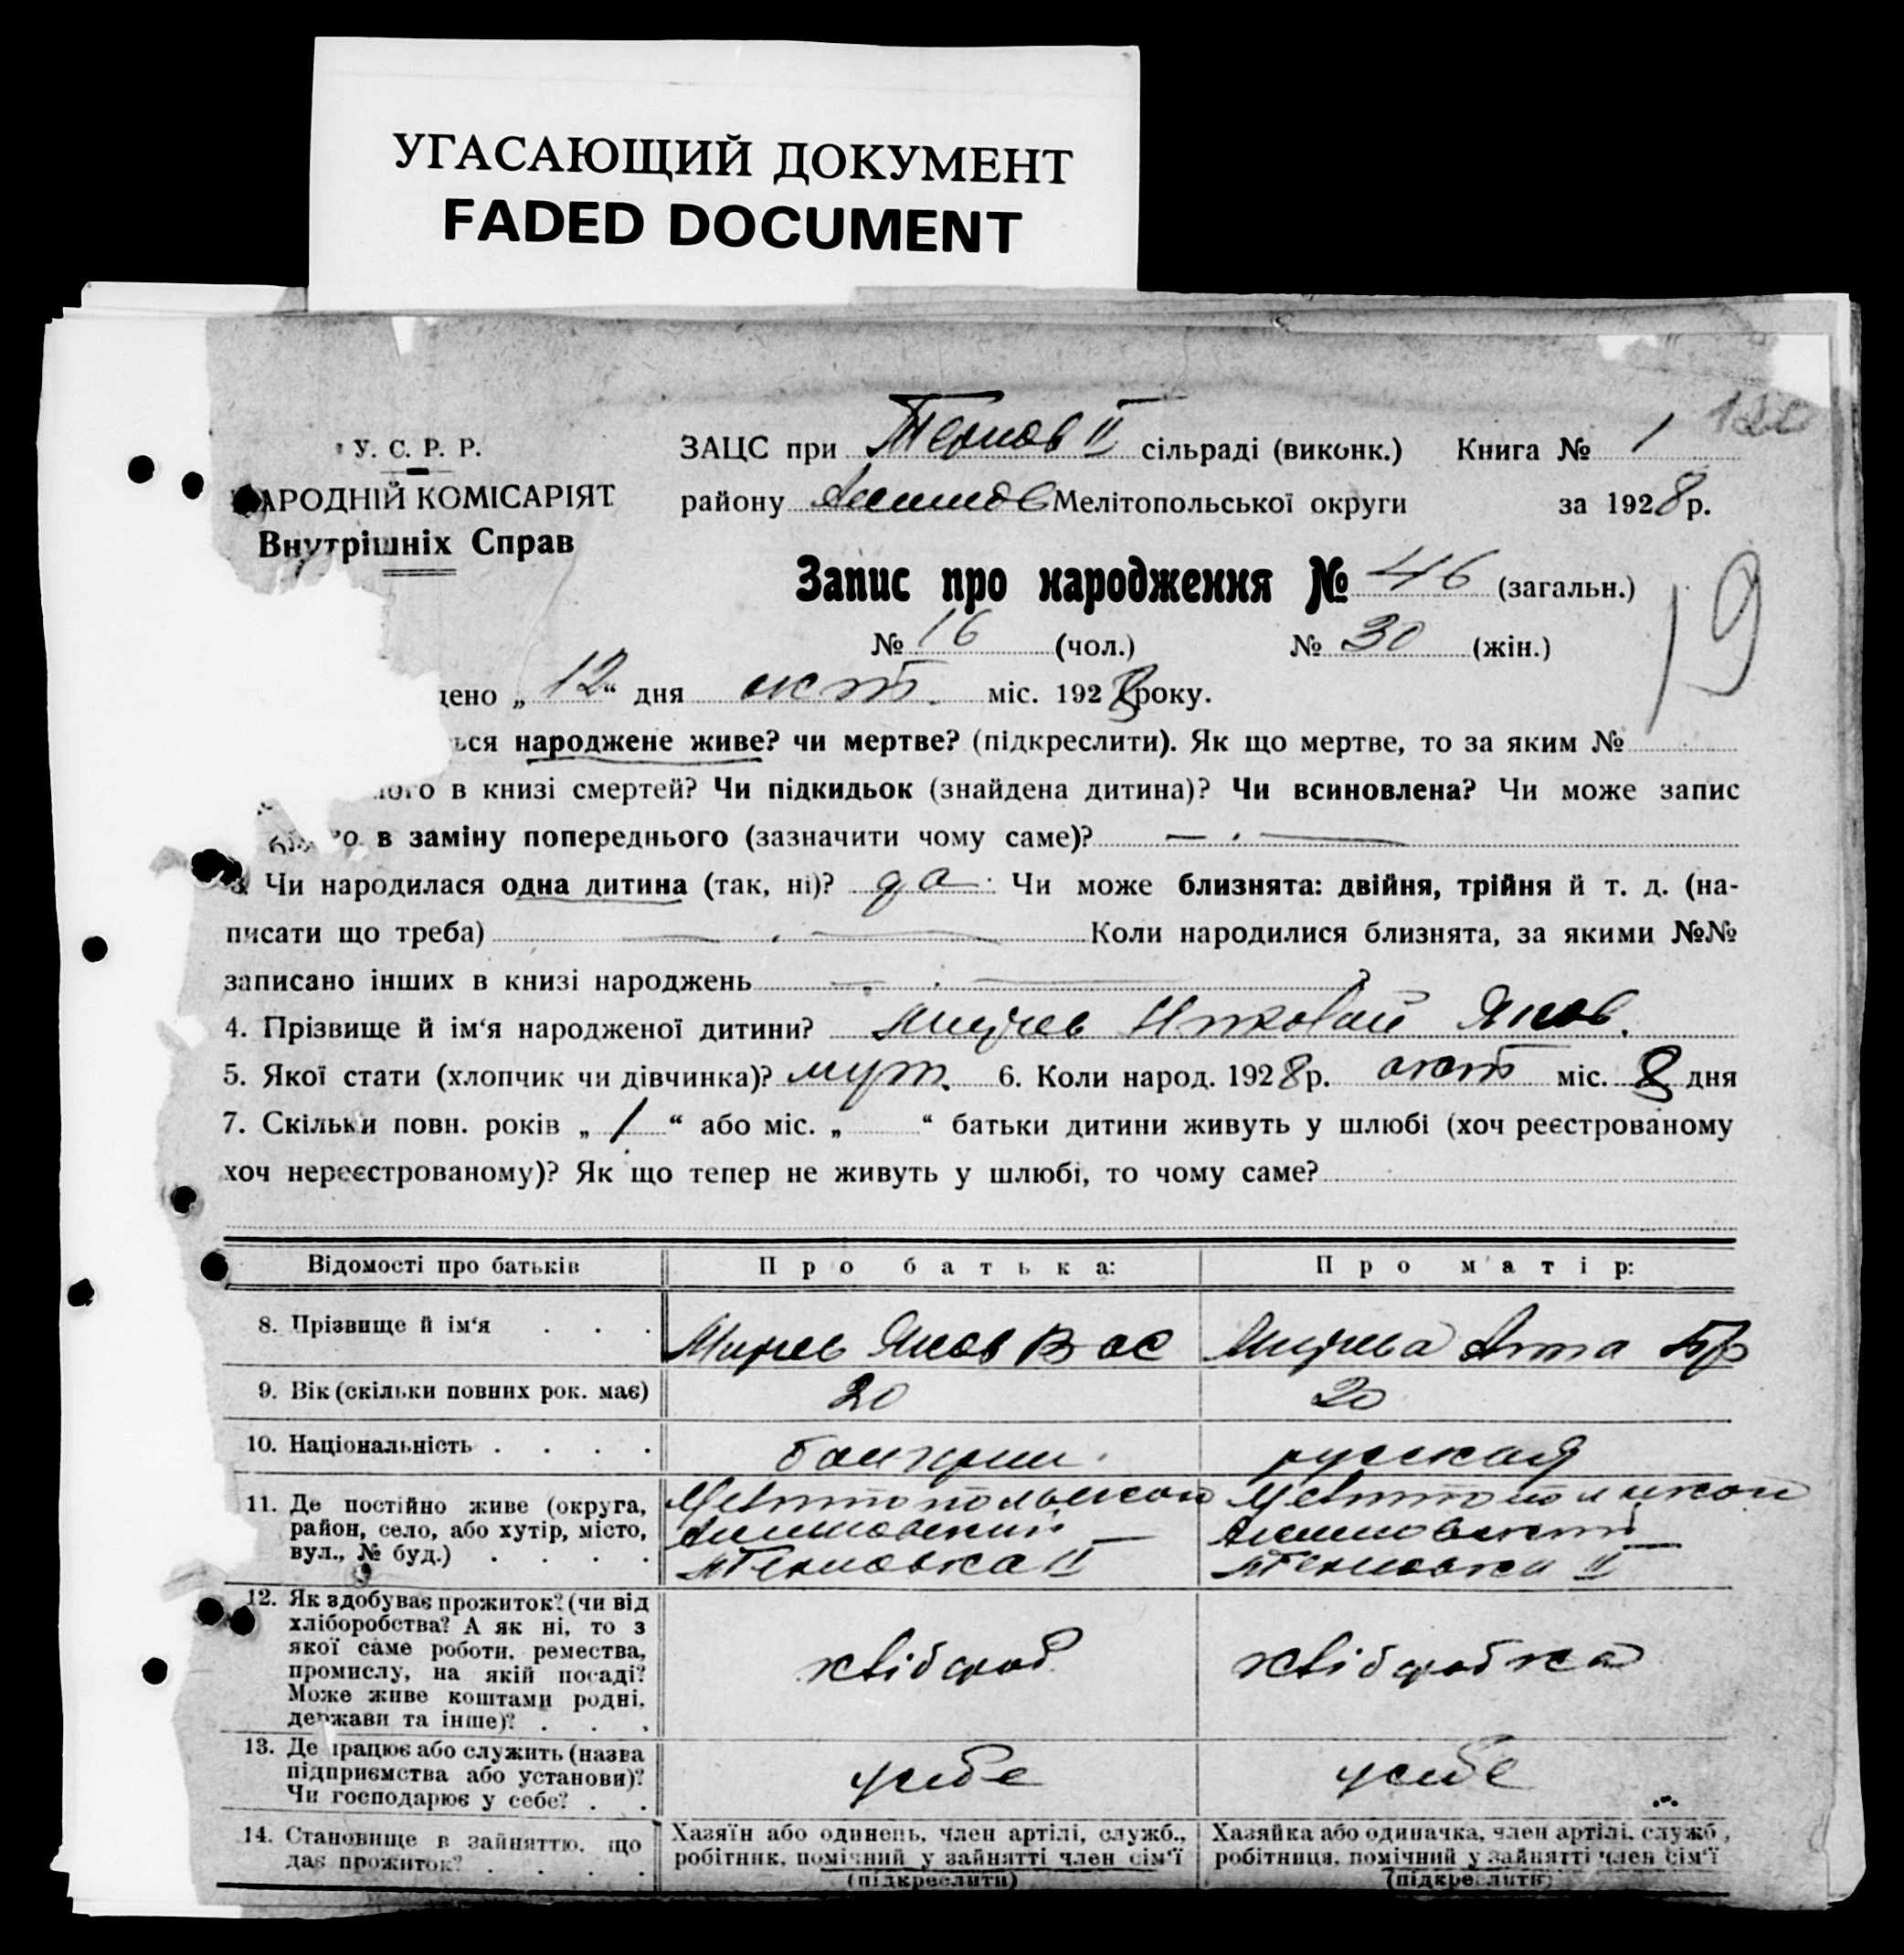 УГАСАЮЩИЙ ДОКУМЕНТ
FADED DOCUMENT
У. С. Р. Р.
АРОДНІЙ КОМІСАРІЯТ
Внутрішніх Справ
ЗАЦС при Тернов II сільраді (виконк.) Книга № 1
району Акимов Мелітопольської округи за 1928 р.
Запис про народження № 46 (загальн.)
№ 16 (чол.) № 30 (жін.)
19
дено „ 12 “ дня окт. міс. 1928 року.
ься народжене живе? чи мертве? (підкреслити). Як що мертве, то за яким №
ного в книзі смертей? Чи підкидьок (знайдена дитина)? Чи всиновлена? Чи може запис
в заміну попереднього (зазначити чому саме)? — . —
3. Чи народилася одна дитина (так, ні)? да Чи може близнята: двійня, трійня й т. д. (на-
писати що треба) — . — Коли народилися близнята, за якими №№
записано інших в книзі народжень — . — ?
4. Прізвище й ім‘я народженої дитини? Николай Яков.
5. Якої стати (хлопчик чи дівчинка)? муж. 6. Коли народ. 1928 р. окт міс. 8 дня
7. Скільки повн. років „ 1 “ або міс. „ “ батьки дитини живуть у шлюбі (хоч реєстрованому
хоч нереєстрованому)? Як що тепер не живуть у шлюбі, то чому саме?
Відомості про батьків Про батька: Про матір:
8. Прізвище й ім‘я . . . Яков Вас Анна
9. Вік (скільки повних рок. має) 20 20
10. Національність . . . . болгарин. русская
11. Де постійно живе (округа, район, село, або хутір, місто, вул., № буд.) . . . .
Мелитопольской
Акимовский
Терновка II
Мелитопольской
Акимовский
Терновка II
12. Як здобуває прожиток? (чи від
хліборобства? А як ні, то з
якої саме роботи, ремества,
промислу, на якій посаді?
Може живе коштами родні,
держави та інше)? . . .
хлібороб хліборобка
13. Де працює або служить (назва
підприємства або установи)?
Чи господарює у себе? . .
у себе у себе
14. Становище в зайняттю, що
дає прожиток? . . . .
Хазяїн або одинець, член артілі, служб.,
робітник, помічний у зайнятті член сім‘ї
(підкреслити)
Хазяйка або одиначка, член артілі, служб.,
робітниця, помічний у зайнятті член сім‘ї
(підкреслити)